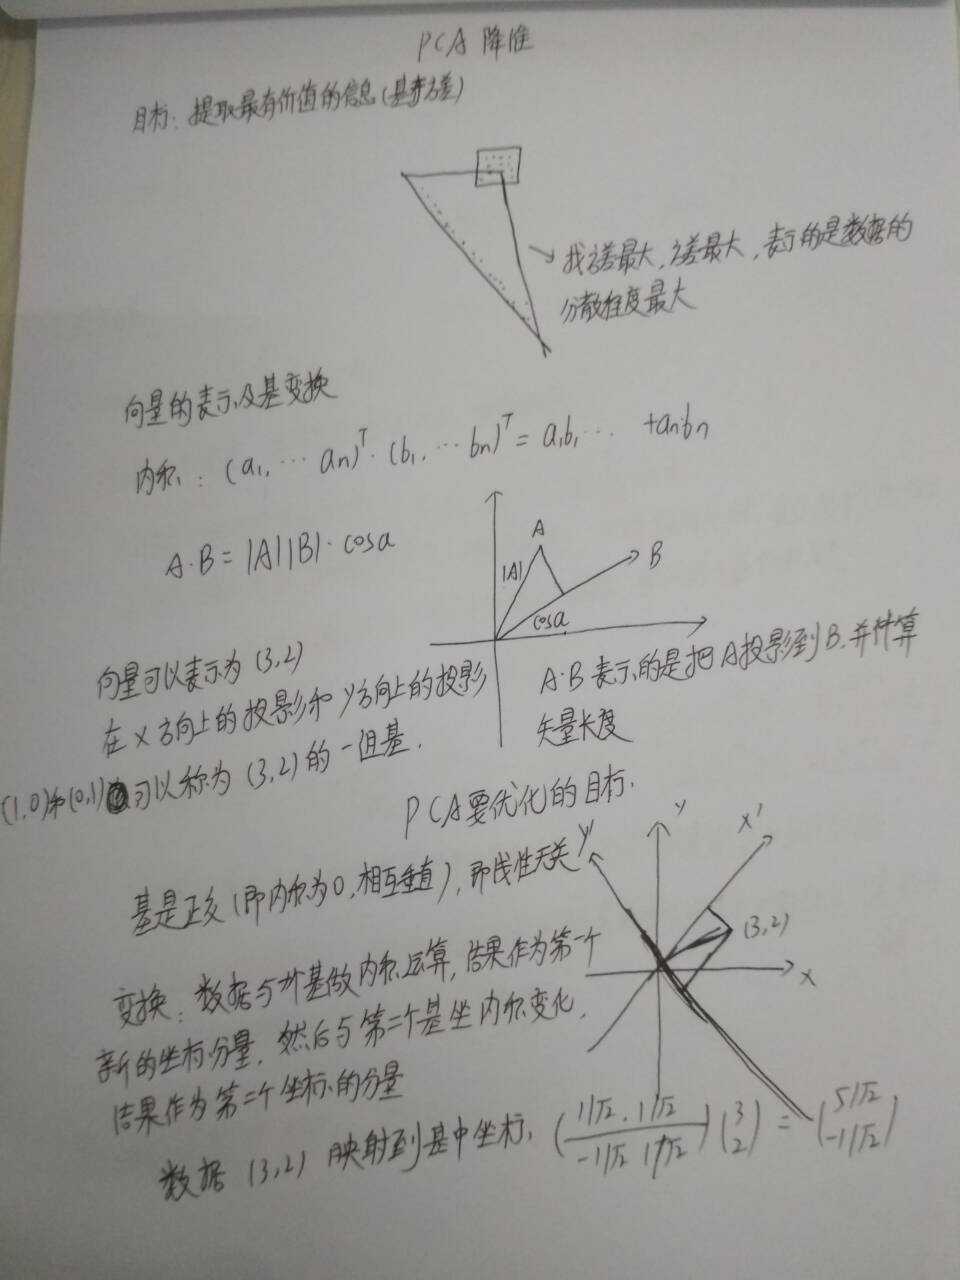 PCA 降维
目标: 提取最有价值的信息(基于方差)
→ 找方差最大, 方差最大, 表示的是数据的
分散程度最大
向量的表示及基变换
内积: (a₁, ⋯ aₙ)ᵀ · (b₁, ⋯ bₙ)ᵀ = a₁b₁ ⋯ +aₙbₙ
A·B = |A||B|· cosa
A
|A|
B
cosa
向量可以表示为 (3,2)
在 X 方向上的投影和 Y方向上的投影
(1,0)和(0,1) 可以称为 (3,2) 的一组基.
A·B 表示的是把 A投影到 B, 并计算
矢量长度
PCA要优化的目标.
基是正交 (即内积为0, 相互垂直), 即线性无关
Y'
Y
X'
(3,2)
X
变换: 数据与一个基做内积运算, 结果作为第一个
新的坐标分量, 然后与第二个基坐内积变化,
结果作为第二个坐标的分量
数据 (3,2) 映射到基中坐标, (1/√2 , 1/√2
-1/√2 1/√2) (3
2) = (5/√2
-1/√2)